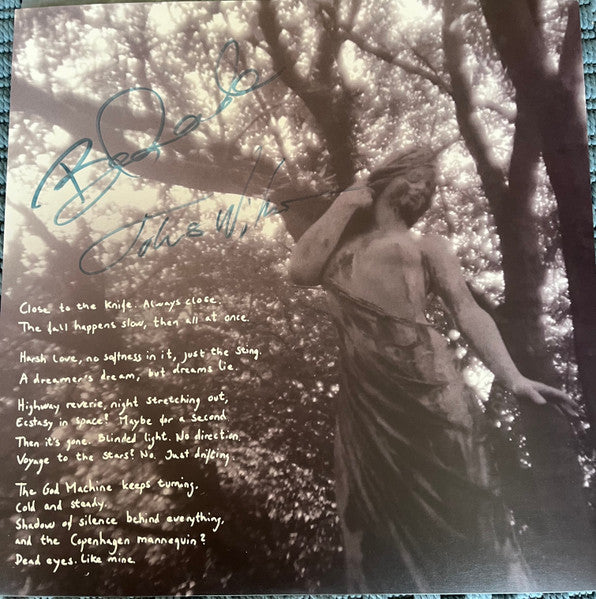 Close to the knife. Always close.
The fall happens slow, then all at once.
Harsh love, no softness in it, just the sting.
A dreamer's dream, but dreams lie.
Highway reverie, night stretching out,
Ecstasy in space? Maybe for a second
Then it's gone. Blinded light. No direction.
Voyage to the stars? No. Just drifting.
The God Machine keeps turning.
Cold and steady.
Shadow of silence behind everything,
and the Copenhagen mannequin?
Dead eyes. Like mine.